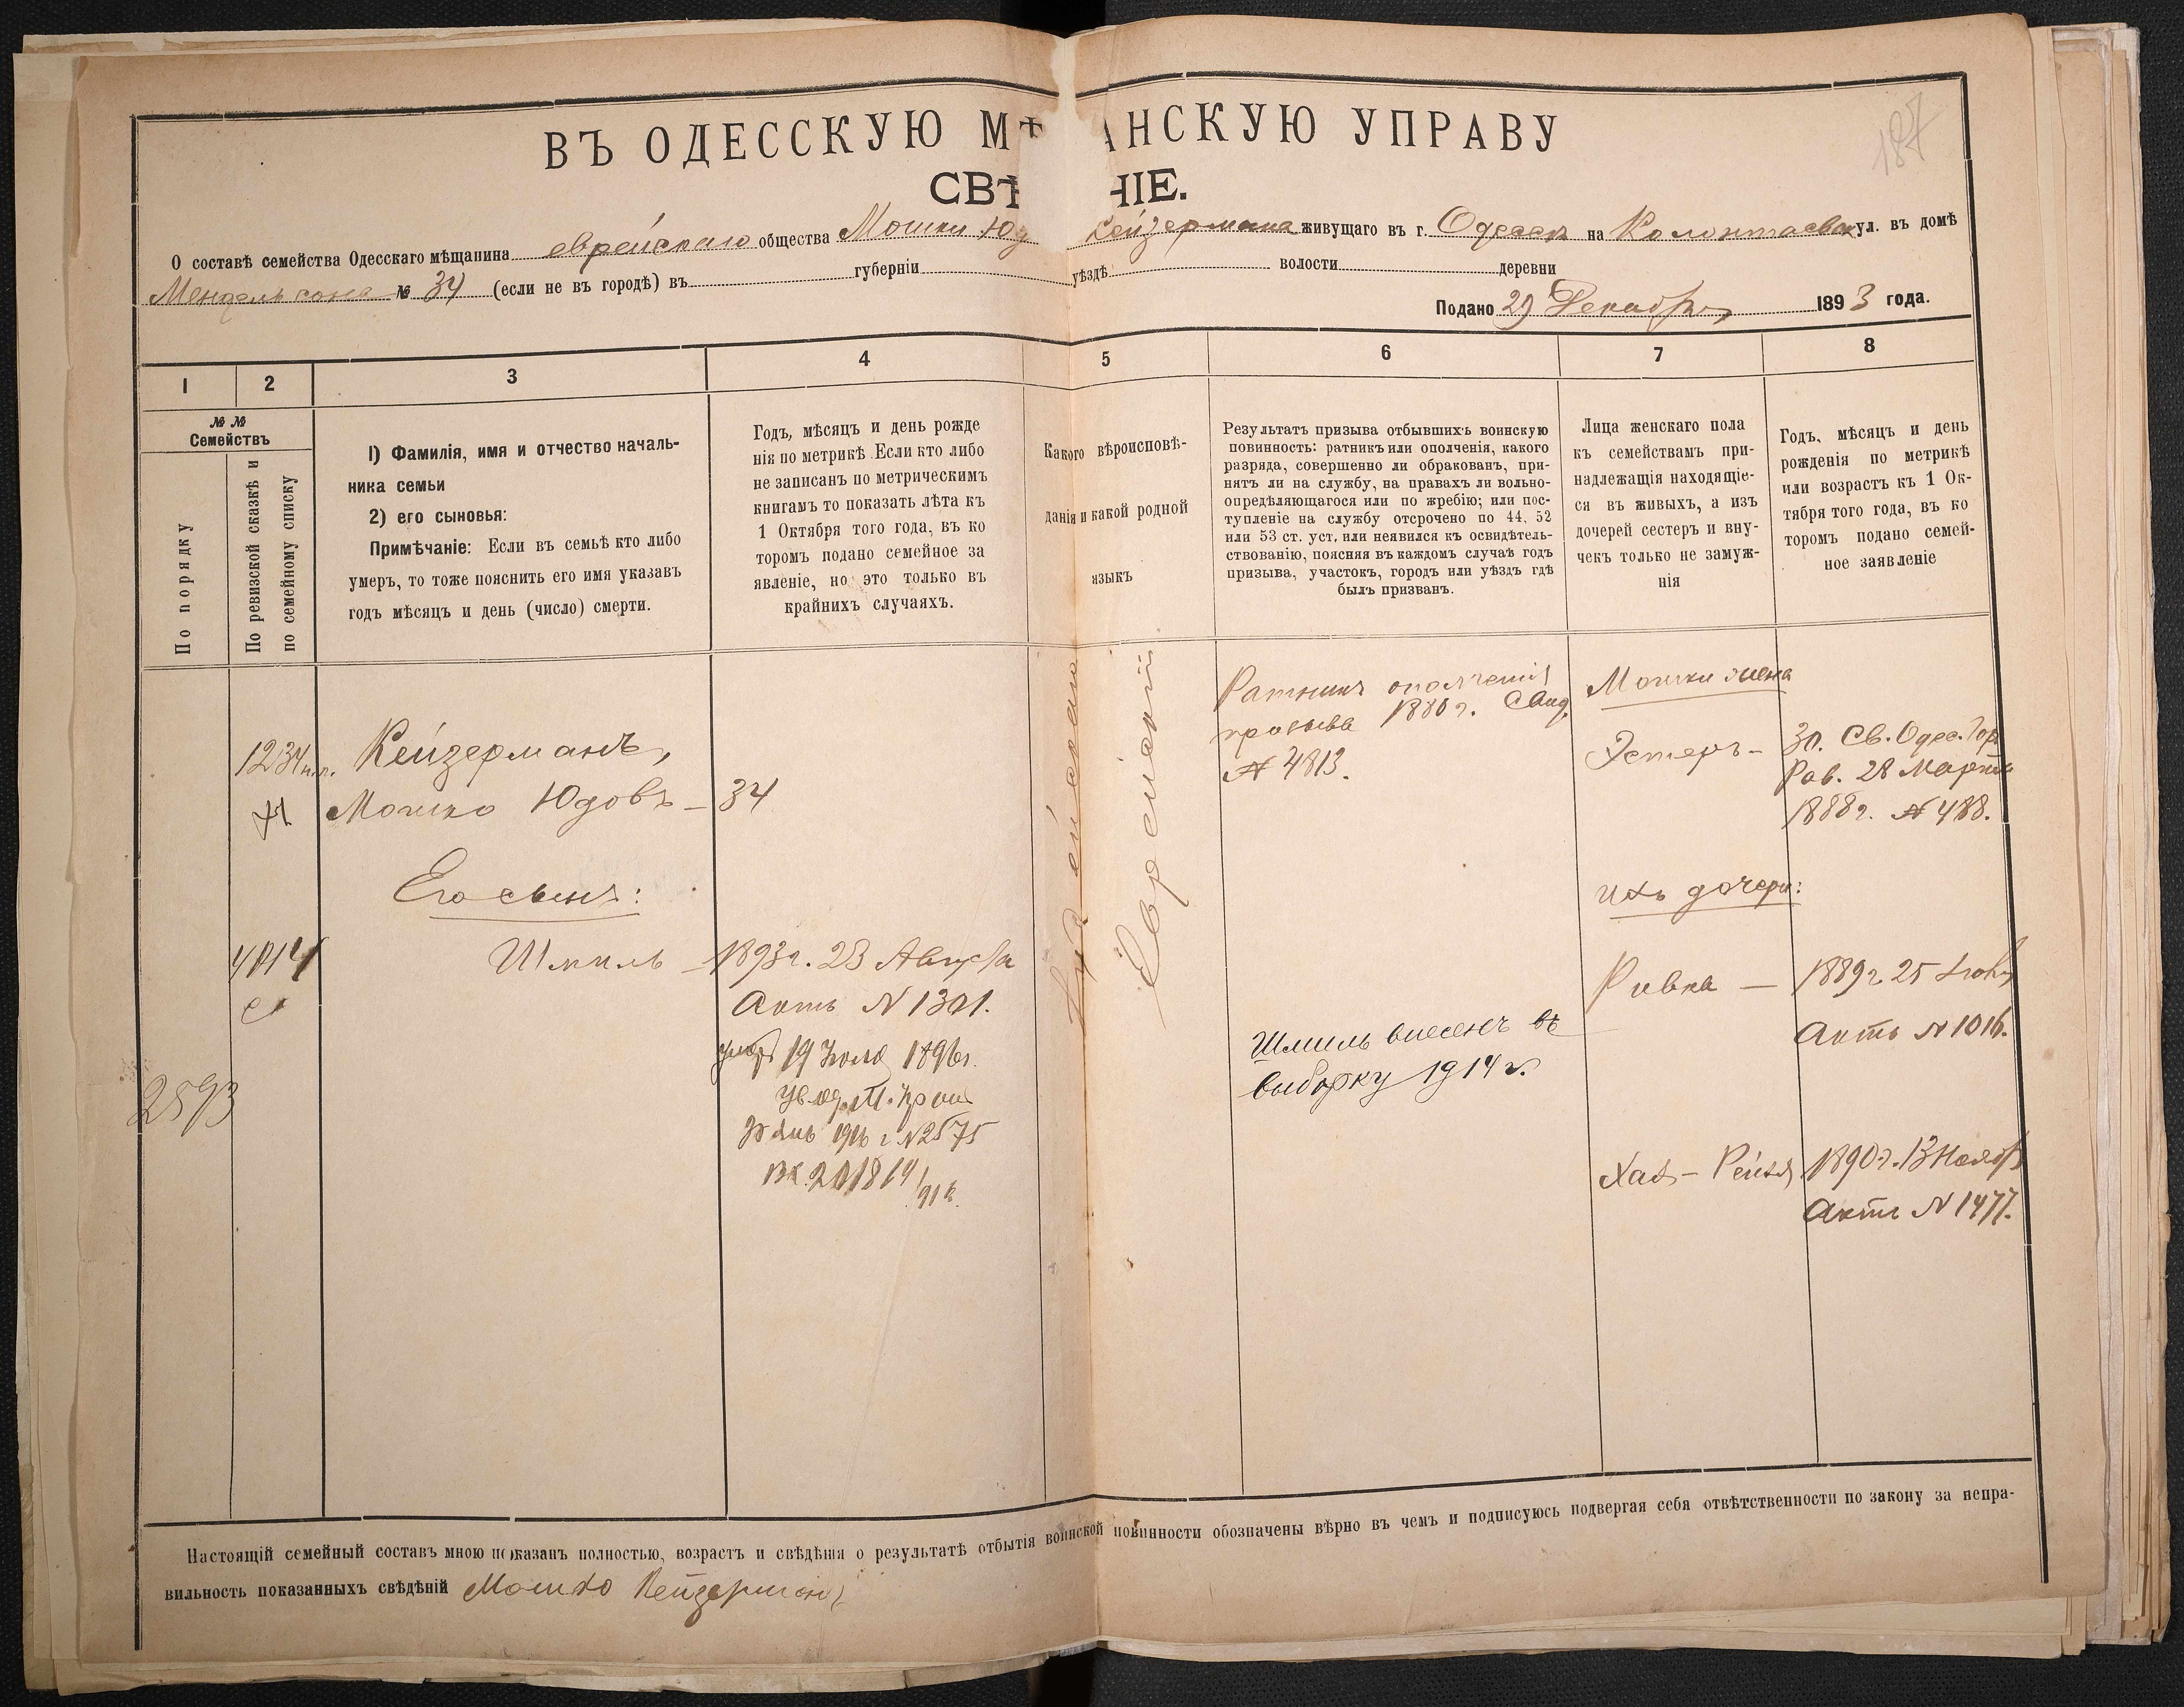 187
ВЪ ОДЕССКУЮ МѢ АНСКУЮ УПРАВУ
СВѢ НІЕ.
О составѣ семейства Одесскаго мѣщанина еврейскаго общества Мошки Юд Кейзермана живущаго въ г. Одессѣ на Колонтаевск ул. въ домѣ
Мендельсона № 34 (если не въ городѣ) въ губерніи уѣздѣ волости деревни
Подано 29 Декабря 1893 года.
1 2 3 4 5 6 7 8
№ №
Семействъ
По порядку
По ревизской сказкѣ и
по семейному списку
1) Фамилія, имя и отчество началь-
ника семьи
2) его сыновья:
Примѣчаніе: Если въ семьѣ кто либо
умеръ, то тоже пояснить его имя указавъ
годъ мѣсяцъ и день (число) смерти.
Годъ, мѣсяцъ и день рожде
нія по метрикѣ. Если кто либо
не записанъ по метрическимъ
книгамъ то показать лѣта къ
1 Октября того года, въ ко
торомъ подано семейное за
явленіе, но это только въ
крайнихъ случаяхъ.
Какого вѣроисповѣ-
данія и какой родной
языкъ
Результатъ призыва отбывшихъ воинскую
повинность: ратникъ или ополченія, какого
разряда, совершенно ли обракованъ, при-
нятъ ли на службу, на правахъ ли вольно-
опредѣляющагося или по жребію; или пос-
тупленіе на службу отсрочено по 44, 52
или 53 ст. уст. или неявился къ освидѣтель-
ствованію, поясняя въ каждомъ случаѣ годъ
призыва, участокъ, городъ или уѣздъ гдѣ
былъ призванъ.
Лица женскаго пола
къ семействамъ при-
надлежащія находящіе-
ся въ живыхъ, а изъ
дочерей сестеръ и вну-
чекъ только не замуж-
нія
Годъ, мѣсяцъ и день
рожденія по метрикѣ
или возрастъ къ 1 Ок-
тября того года, въ ко
торомъ подано семей-
ное заявленіе
1234
Кейзерманъ,
Мошко Юдовъ — 34
Его сынъ:
Шмиль — 1893 г. 23 Августа
Актъ N 1301.
умеръ 19 Іюля 1896 г.
N 2575
2593
Іудейскаго
Еврейскій
Ратникъ ополченія
призыва 1880 г. Свид.
№ 4813.
Шмиль внесенъ въ
выборку 1914 г.
Мошки жена
Эстеръ — 30. Св. Одес. Гор.
Рав. 28 Марта
1888 г. № 488.
ихъ дочери:
Ривка — 1889 г. 25
Актъ № 1016.
Хая-Рейзя 1890 г. 13 Ноября
Актъ N 1477.
Настоящій семейный составъ мною показанъ полностью, возрастъ и свѣдѣнія о результатѣ отбытія воинской повинности обозначены вѣрно въ чемъ и подписуюсь подвергая себя отвѣтственности по закону за непра-
вильность показанныхъ свѣдѣній Мошко Кейзерманъ